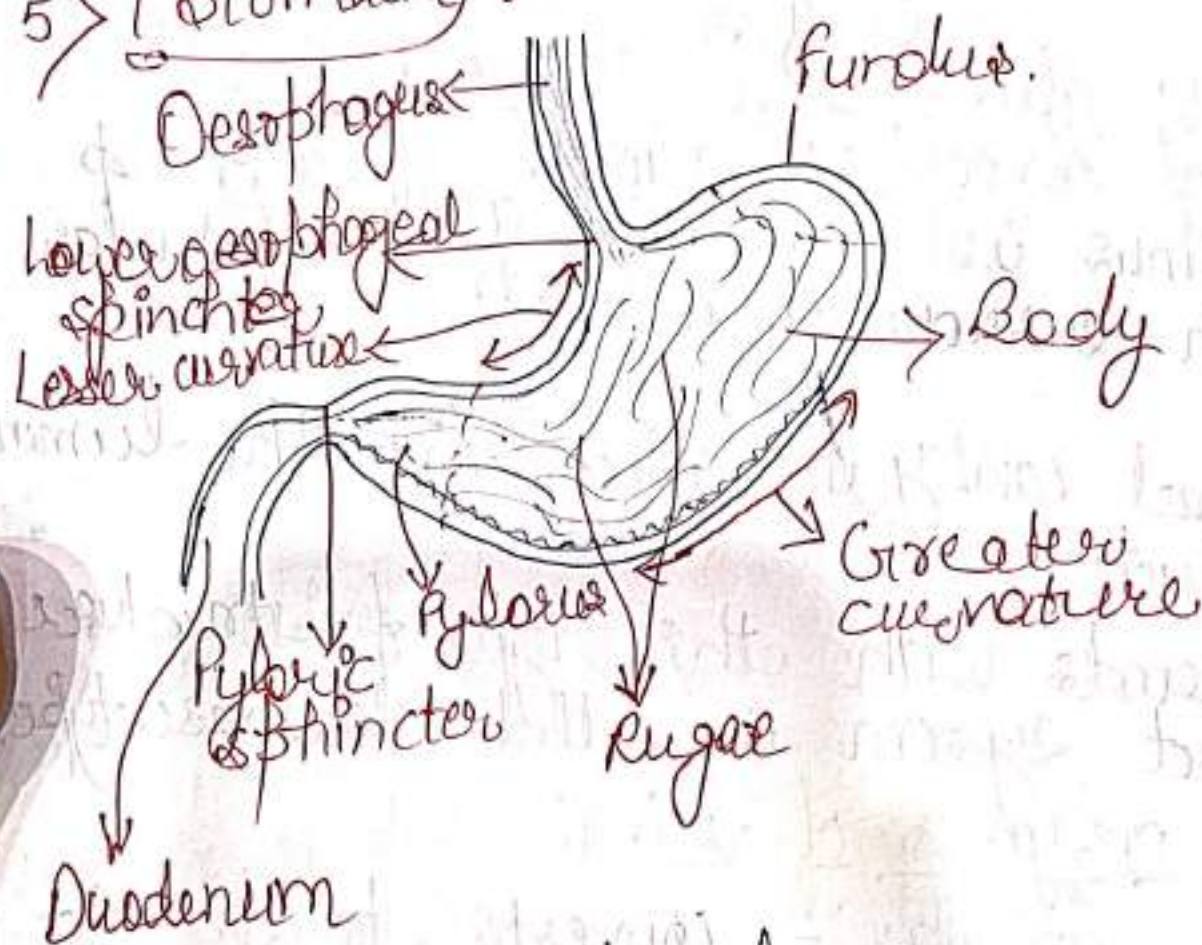 5> Stomach
Oesophagus
fundus.
Lower oesophageal
spinchter
Lesser curvature
Body
Greater
curvature
Pylorus
Pyloric
sphincter
Rugae
Duodenum